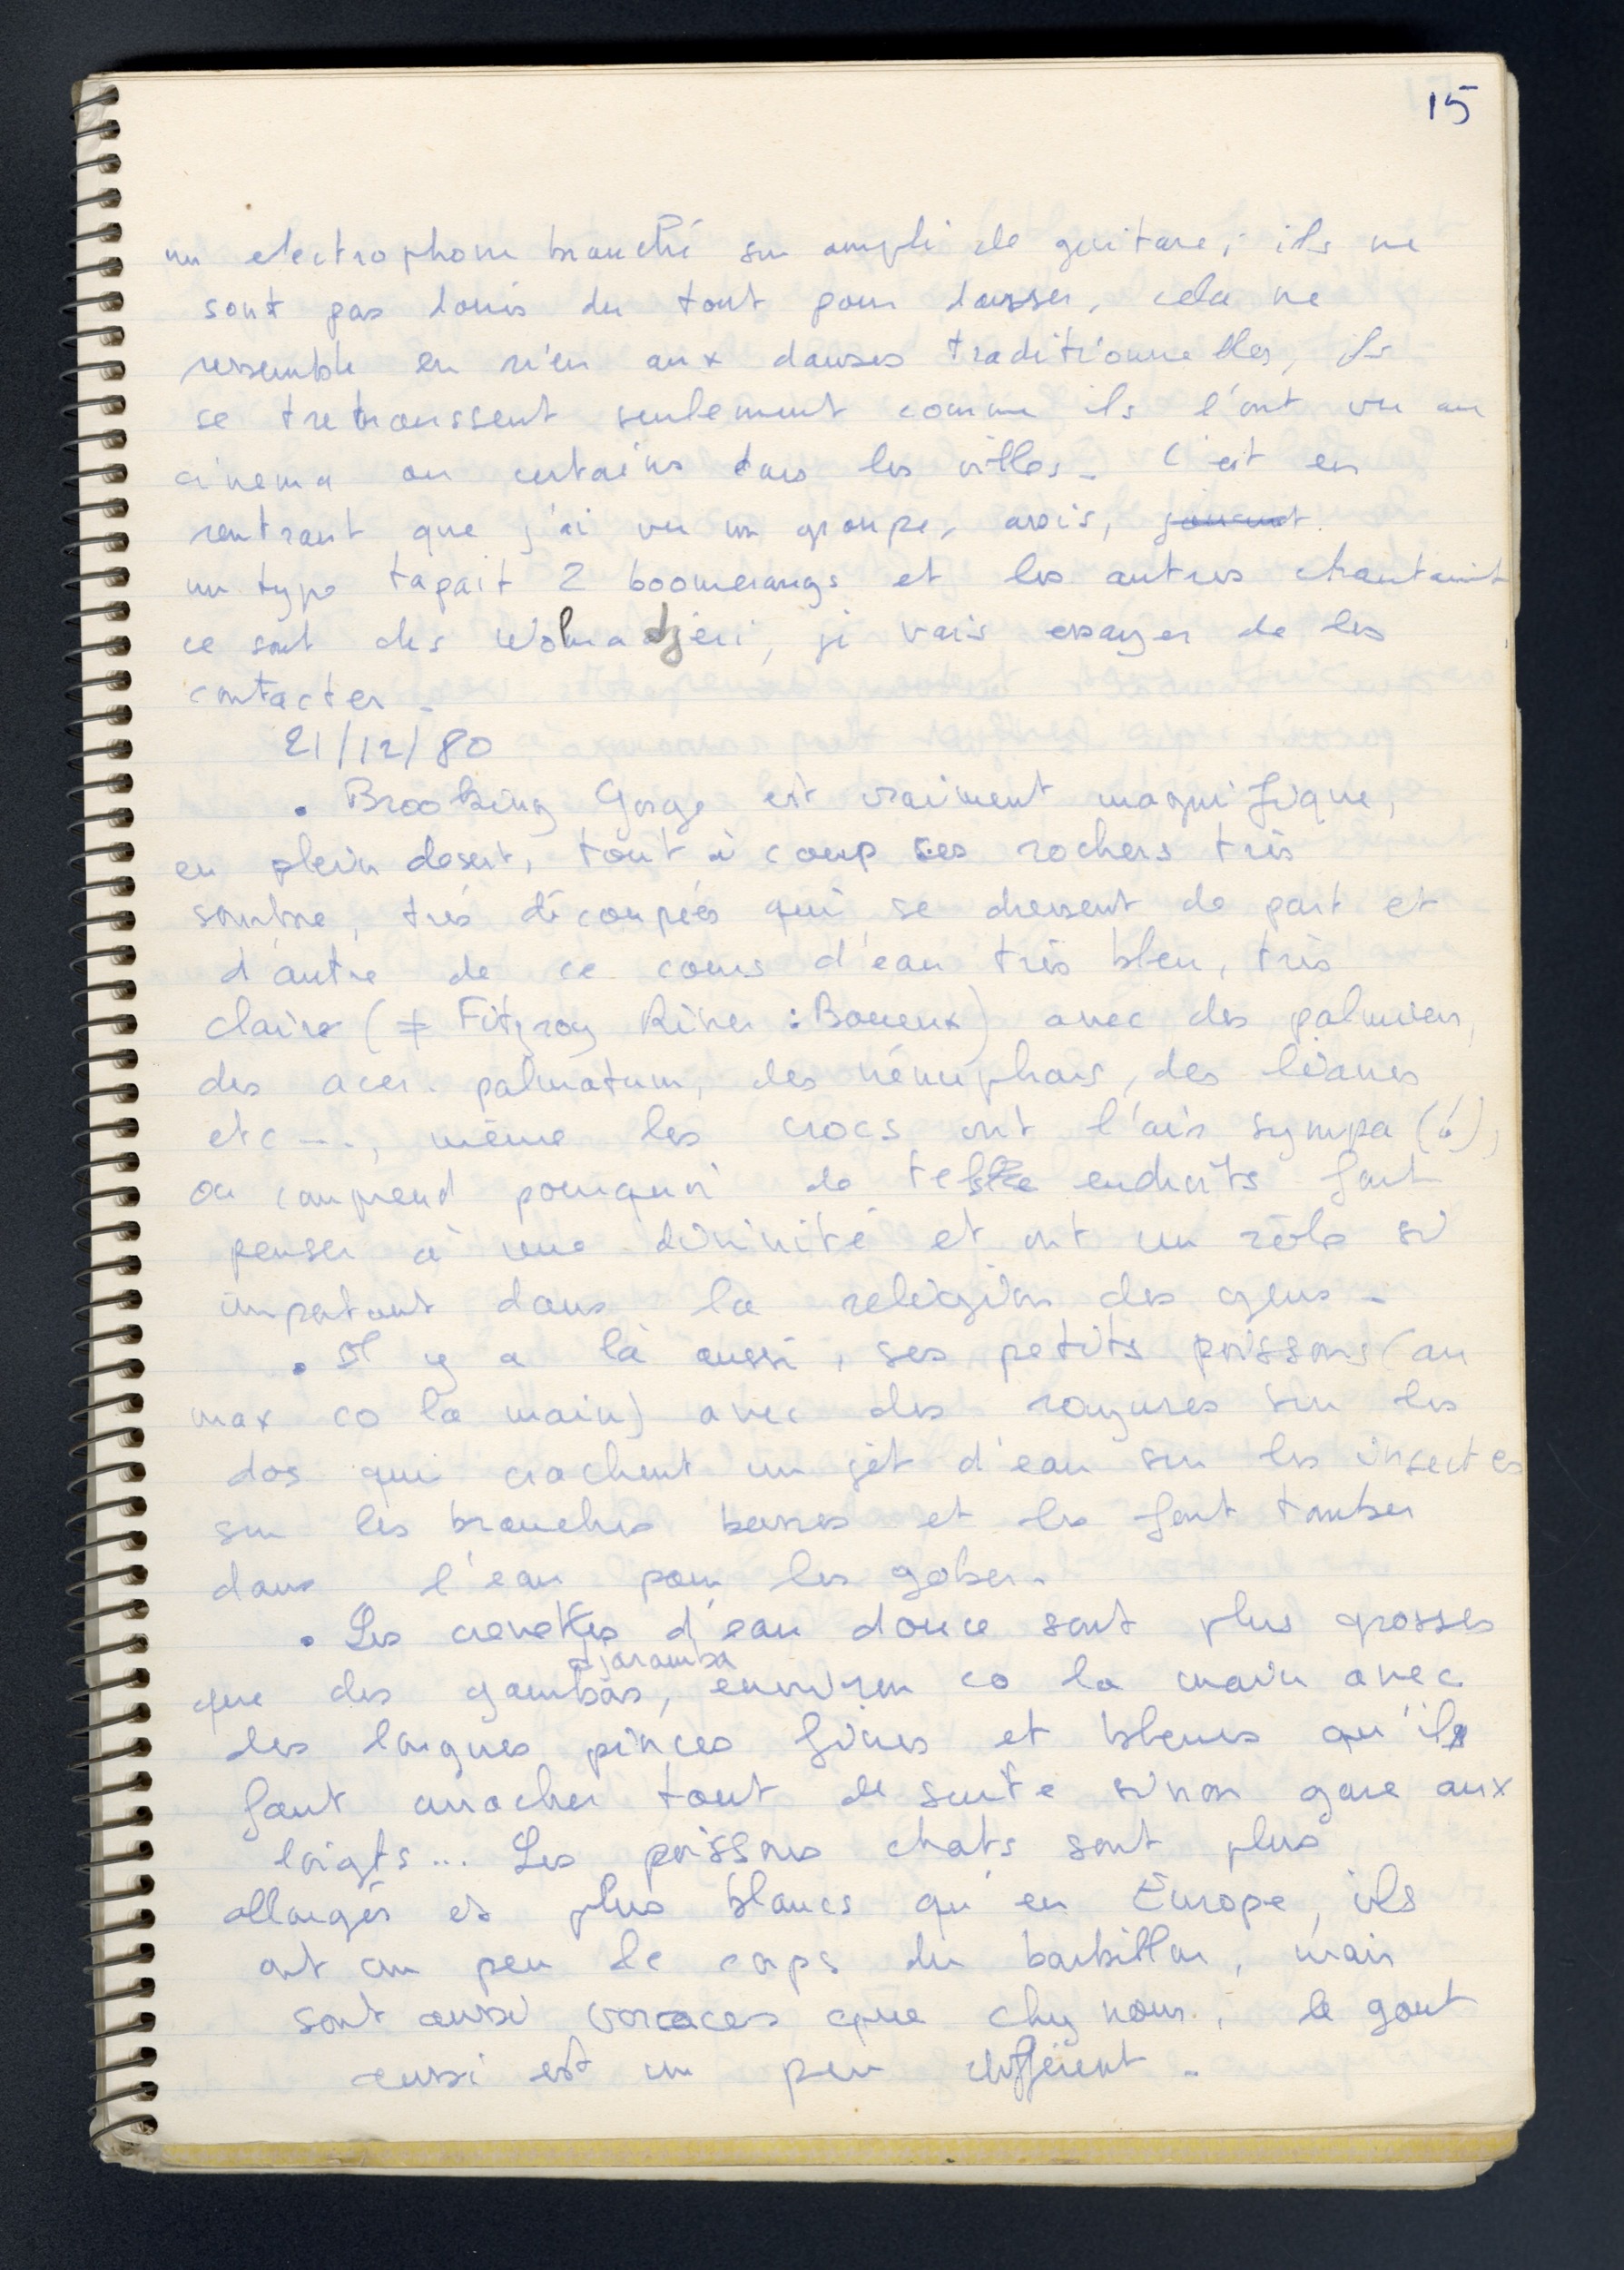 15
un electrophone branché sur ampli de guitare, ils ne
sont pas doués du tout pour danser, cela ne
ressemble en rien aux danses traditionnelles, ils
se tremoussent seulement comme ils l'ont vu au
cinema ou certains dans les villes _ C'est en
rentrant que j'ai vu un groupe, assis, jouant.
un type tapait 2 boomerangs et les autres chantaient
ce sont des Wolmadjeri, je vais essayer de les
contacter _
21/12/80
. Brooking Gorge est vraiment magnifique,
en plein desert, tout à coup ces rochers très
sombre, très découpés qui se dressent de part et
d'autre de ce cours d'eau très bleu, très
claire (≠ Fitzroy River : Boueux) avec des palmiers,
des acer. palmatum, des nénuphars, des lianes
etc..., même les crocs ont l'air sympa (!),
on comprend pourquoi de tels endroits font
penser à une divinité et ont un rôle si
important dans la religion des gens _
. Il y a là aussi, ces petits poissons (au
max co la main) avec des rayures sur les
dos qui crachent un jet d'eau sur les insectes
sur les branches basses et les font tomber
dans l'eau pour les gober _
. Les crevettes d'eau douce sont plus grosses
djaramba
que des gambas, environ co la main avec
des longues pinces fines et bleues qu'il
faut arracher tout de suite sinon gare aux
doigts... Les poissons chats sont plus
allongés et plus blancs qu'en Europe, ils
ont un peu le corps du barbillon, mais
sont aussi voraces que chez nous, le gout
aussi est un peu différent _